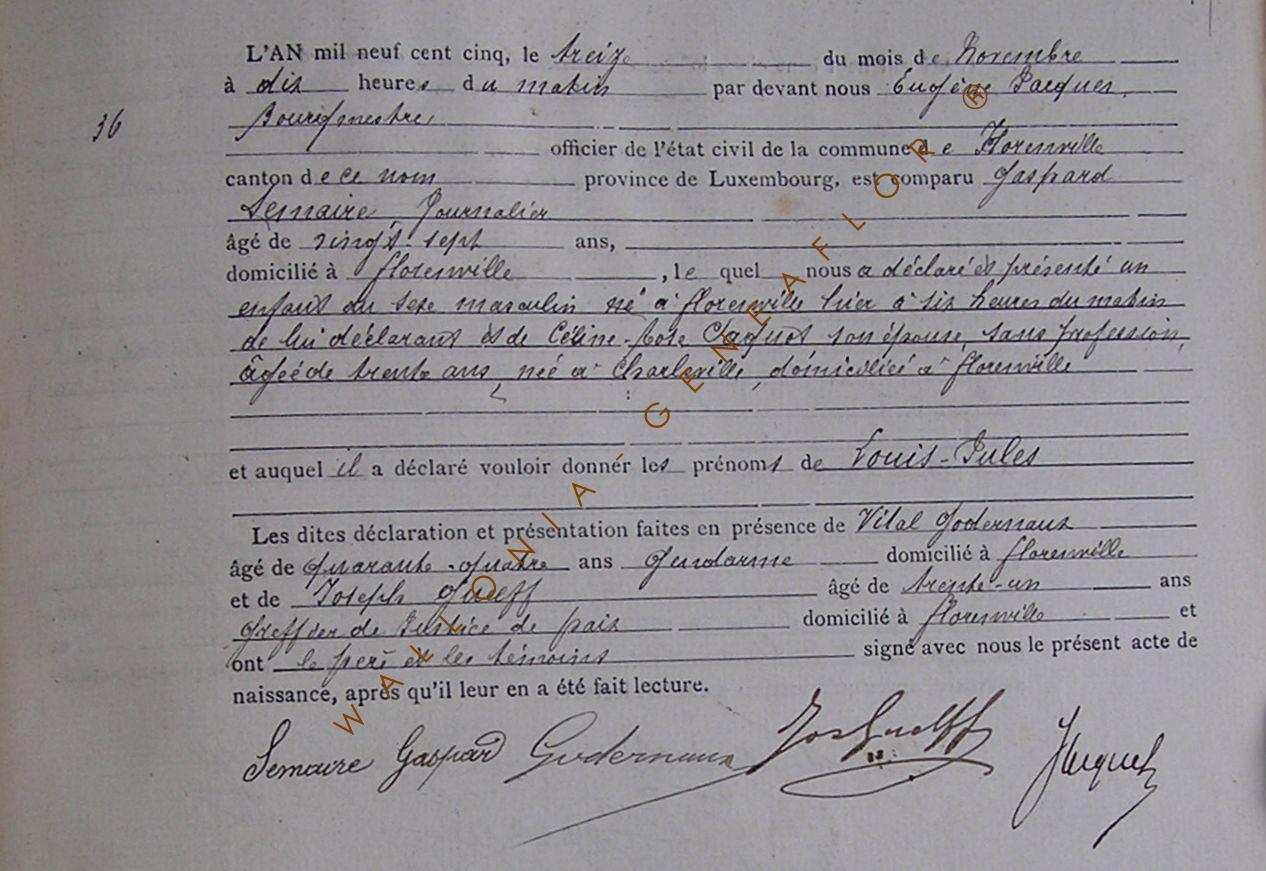 L'AN mil neuf cent cinq, le treize du mois de Novembre
à dix heures du matin par devant nous Eugène Jacques,
36
Bourgmestre,
officier de l'état civil de la commune de Florenville
canton de ce nom province de Luxembourg, est comparu Gaspard
Semaire, Journalier
âgé de vingt-sept ans,
domicilié à Florenville, le quel nous a déclaré et présenté un
enfant du sexe masculin né à Florenville hier à six heures du matin
de lui déclarant et de Céline-Rose Claquot son épouse, sans profession,
âgée de trente ans, née à Charleville, domiciliée à Florenville
et auquel il a déclaré vouloir donner les prénoms de Louis-Jules
Les dites déclaration et présentation faites en présence de Vital Godernaux
âgé de quarante-quatre ans Gendarme domicilié à Florenville
et de Joseph Guelff âgé de trente-un ans
Greffier de Justice de paix domicilié à Florenville et
ont le père et les témoins signé avec nous le présent acte de
naissance, après qu'il leur en a été fait lecture.
Semaire Gaspard Godernaux Jos Guelff Jacques
WALLONIA GENEAFLOR ®